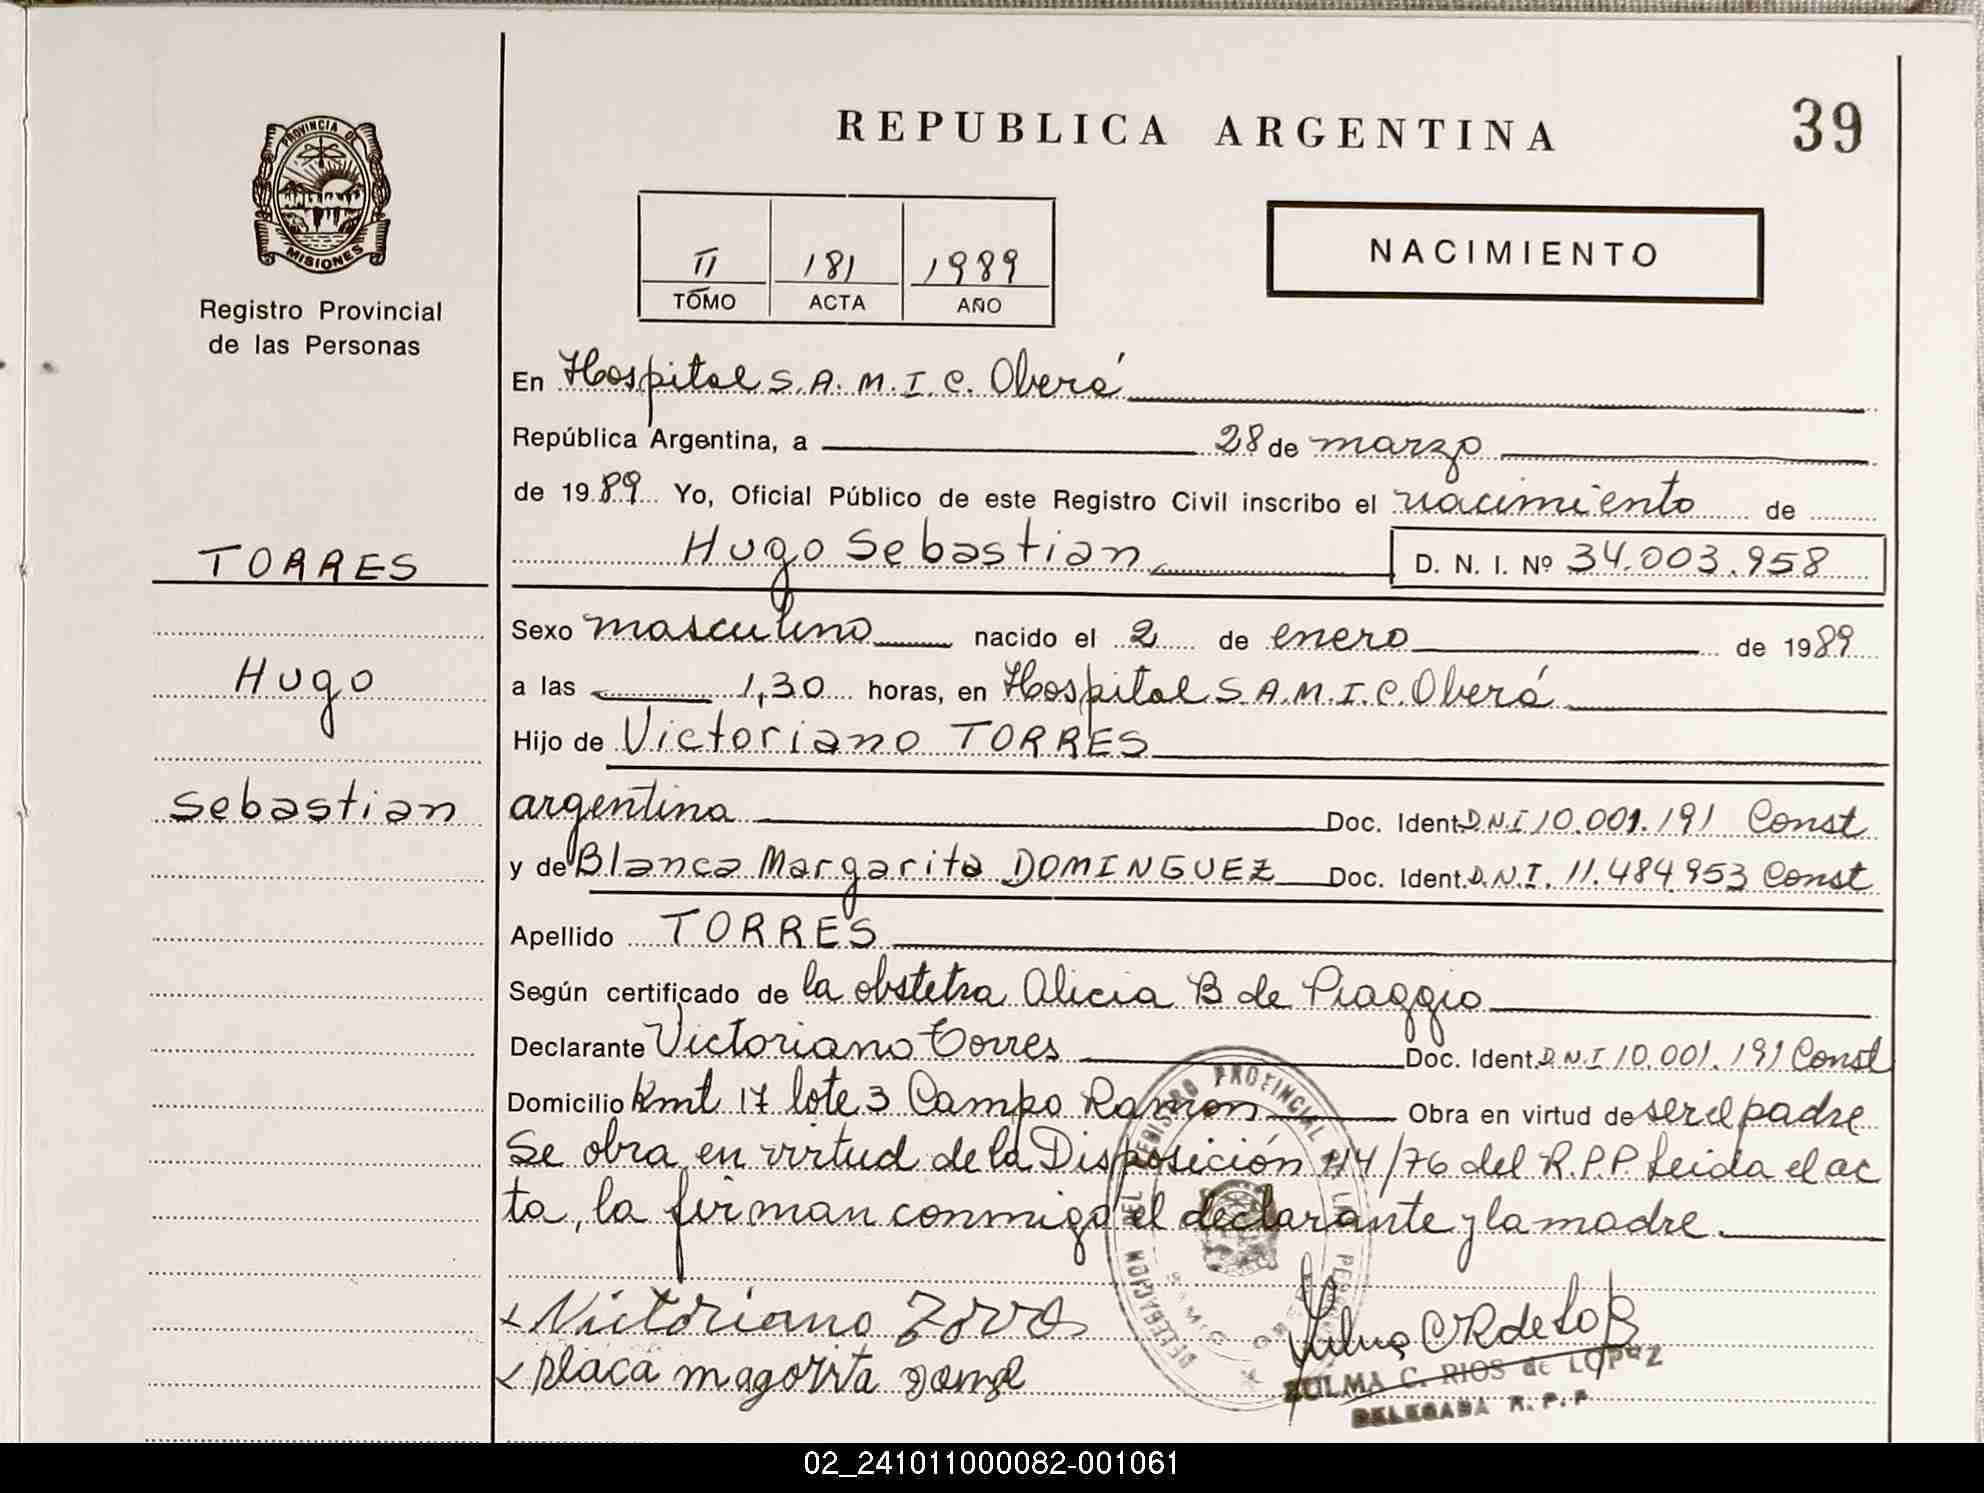 REPUBLICA ARGENTINA
39
PROVINCIA DE
MISIONES
Registro Provincial
de las Personas
II 181 1989
TOMO ACTA AÑO
NACIMIENTO
En Hospital S.A.M.I.C. Oberá
República Argentina, a 28 de marzo
de 1989 Yo, Oficial Público de este Registro Civil inscribo el nacimiento de
TORRES
Hugo Sebastian D. N. I. Nº 34.003.958
Sexo masculino nacido el 2 de enero de 1989
Hugo
a las 1,30 horas, en Hospital S.A.M.I.C. Oberá
Hijo de Victoriano TORRES
Sebastian
argentina Doc. Ident. D.N.I 10.001.191 Const
y de Blanca Margarita DOMINGUEZ Doc. Ident. D.N.I. 11.484.953 Const
Apellido TORRES
Según certificado de la obstetra Alicia B de Piaggio
Declarante Victoriano Torres Doc. Ident. D.N.I 10.001.191 Const
Domicilio Kmt 17 lote 3 Campo Ramon Obra en virtud de ser el padre
Se obra en virtud de la Disposición 114/76 del R.P.P. Leida el ac
ta, la firman conmigo el declarante y la madre.
DELEGACION DEL REGISTRO PROVINCIAL DE LAS PERSONAS
Victoriano
ZULMA C. RIOS de LOPEZ
DELEGADA R. P. P
02_241011000082-001061